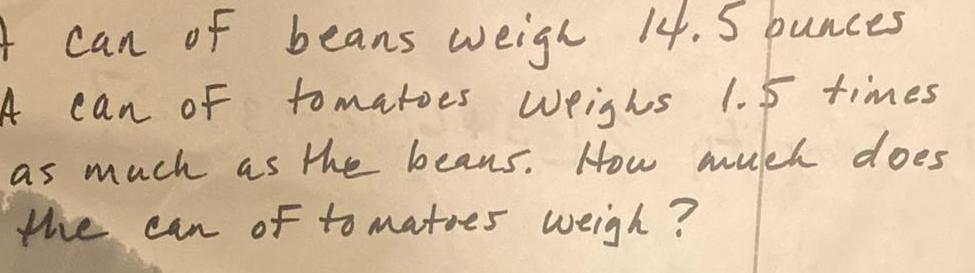 A can of beans weigh 14.5 ounces
A can of tomatoes weighs 1.5 times
as much as the beans. How much does
the can of tomatoes weigh?